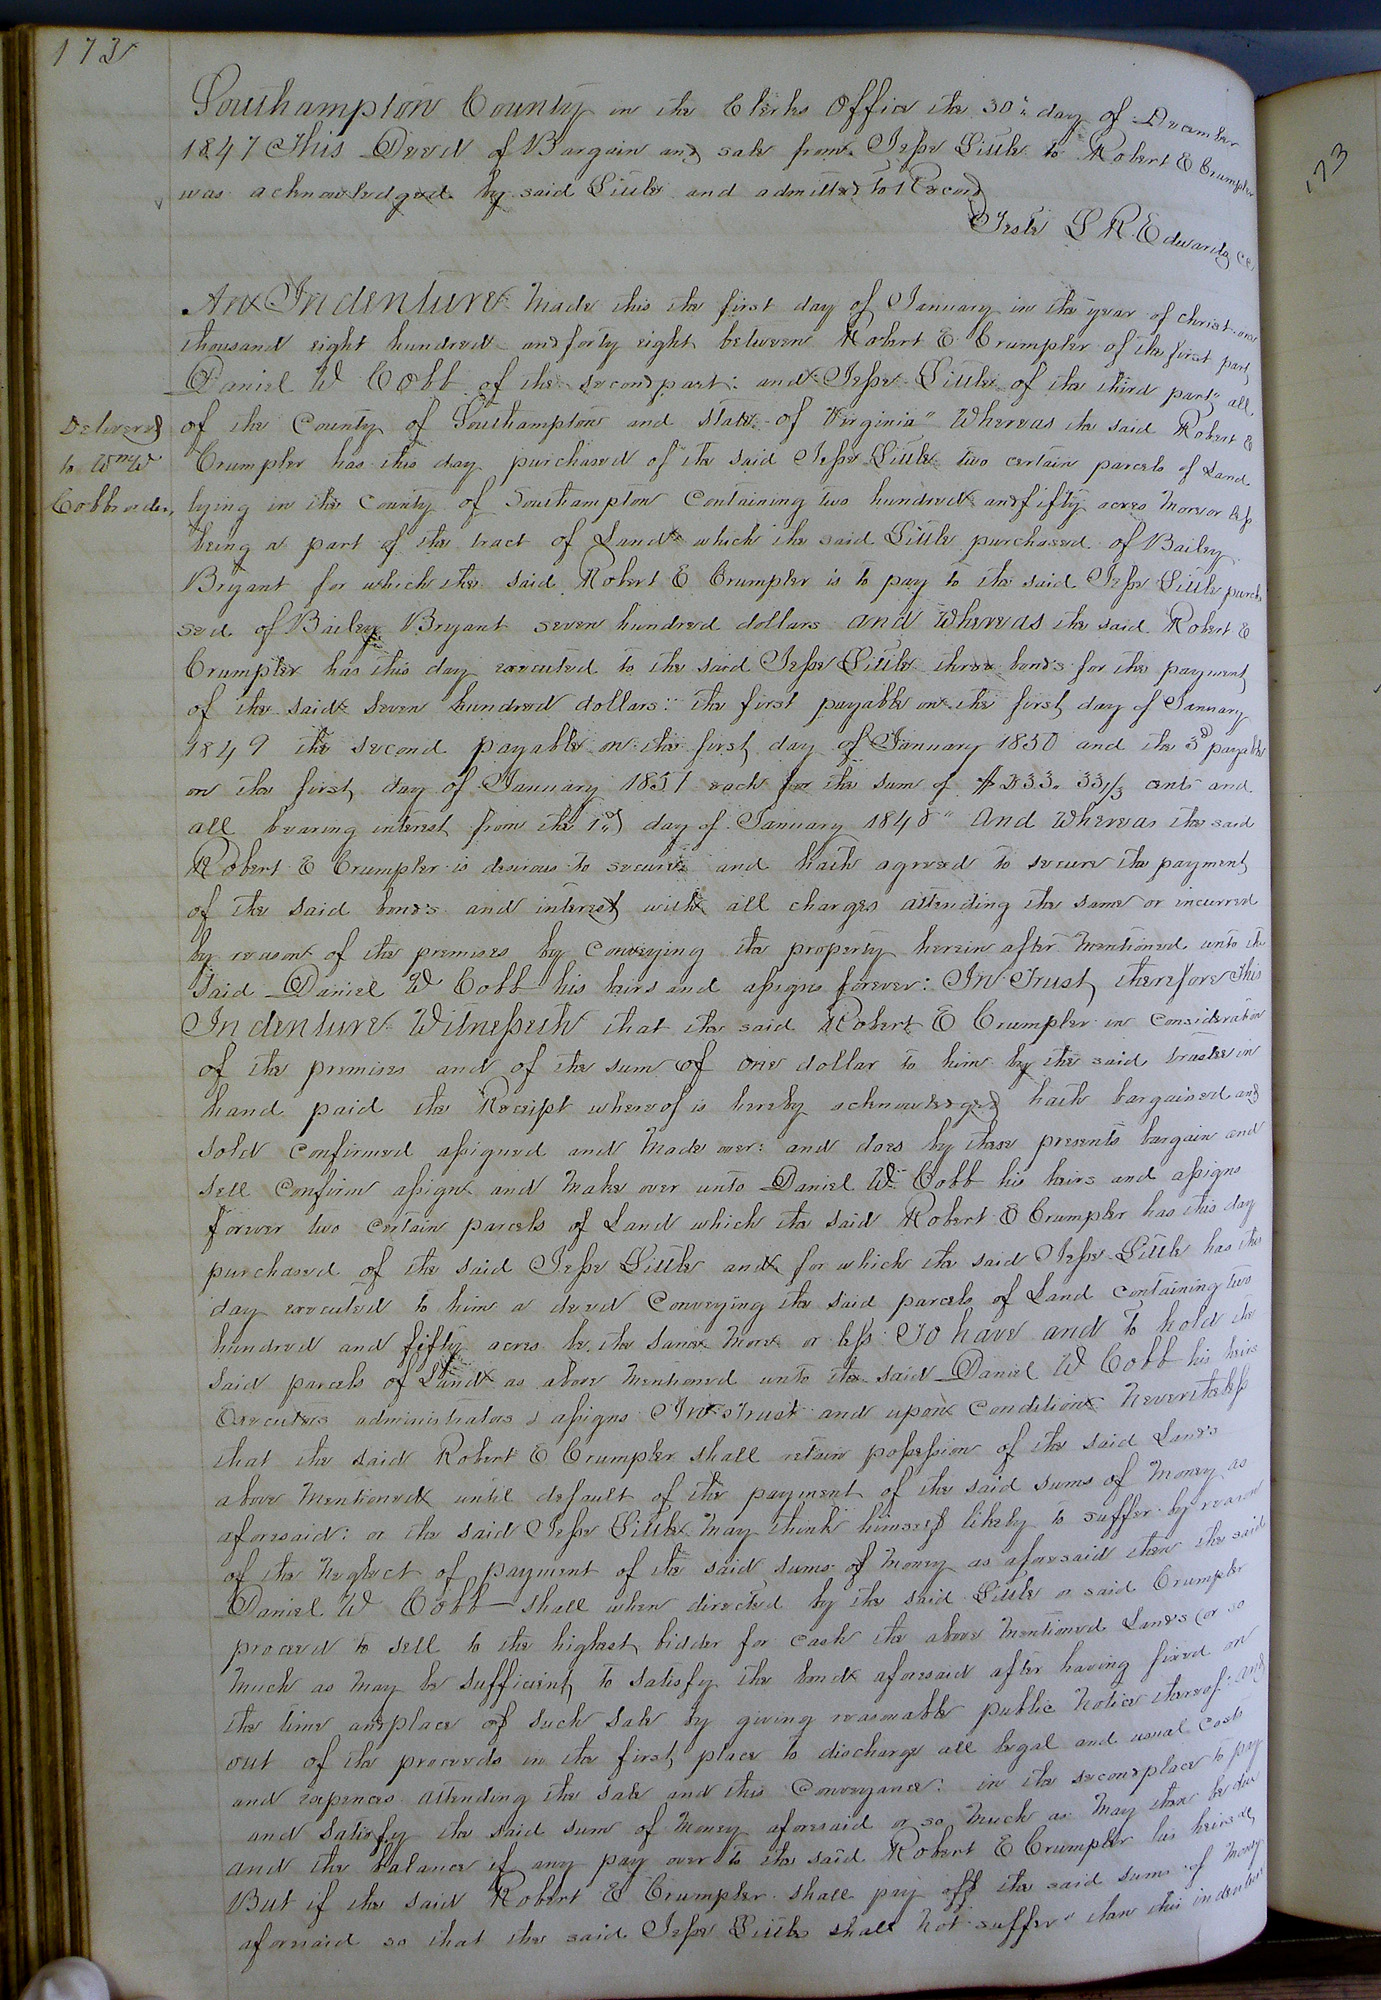 173
Southampton County in the Clerks Office the 30th day of December
1847 This Deed of Bargain and sale from Jesse Little to Robert E Crumpler
was acknowledged by said Little and admitted to Record
Teste L R Edwards CC
An Indenture Made this the first day of January in the year of christ one
thousand eight hundred and forty eight between Robert E Crumpler of the first part
Daniel W Cobb of the second part: and Jesse Little of the third part, all
Delivered
to Wm W
Cobb order,
of the County of Southampton and state of Virginia" Whereas the said Robert E
Crumpler has this day purchased of the said Jesse Little two certain parcels of Land
lying in the County of Southampton Containing two hundred and fifty acres More or less
being a part of the tract of Land which the said Little purchased of Bailey
Bryant for which the said Robert E Crumpler is to pay to the said Jesse Little purcha
sed of Bailey Bryant seven hundred dollars and Whereas the said Robert E
Crumpler has this day executed to the said Jesse Little three bonds for the payment
of the said seven hundred dollars: the first payable on the first day of January
1849 the second payable on the first day of January 1850 and the 3d payable
on the first day of January 1851 each for the sum of $233. 33 1/3 cents and
all bearing interest from the 1st day of January 1848" And Whereas the said
Robert E Crumpler is desirous to secure and hath agreed to secure the payment
of the said bonds and interest with all charges attending the same or incurred
by reason of the premises by Conveying the property herein after Mentioned unto the
said Daniel W Cobb his heirs and assigns forever: In Trust, therefore This
Indenture Witnesseth that the said Robert E Crumpler in Consideration
of the premises and of the sum of one dollar to him by the said trustee in
hand paid the Receipt whereof is hereby acknowledged hath bargained and
sold confirmed assigned and Made over: and does by these presents bargain and
sell Confirm assign and Make over unto Daniel W Cobb his heirs and assigns
forever two certain parcels of Land which the said Robert E Crumpler has this day
purchased of the said Jesse Little and for which the said Jesse Little has this
day executed to him a deed Conveying the said parcels of Land containing two
hundred and fifty acres be the same More or less To have and To hold the
said parcels of Land as above Mentioned unto the said Daniel W Cobb his heirs
Executers administrators & assigns In Trust and upon Condition Nevertheless
that the said Robert E Crumpler shall retain possession of the said Lands
above Mentioned until default of the payment of the said sums of Money as
aforesaid: or the said Jesse Little May think himself likely to suffer by reason
of the Neglect of payment of the said sums of Money as aforesaid then the said
Daniel W Cobb shall when directed by the said Little or said Crumpler
proceed to sell to the highest bidder for Cash the above Mentioned Lands (or so
Much as May be sufficient to satisfy the bond aforesaid after having fixed on
the time and place of such sale by giving reasonable public Notice thereof: and
out of the proceeds in the first place to discharge all legal and usual Costs
and expences attending the sale and this Conveyance: in the second place to pay
and satisfy the said sum of Money aforesaid or so Much as May then be due
and the balance if any pay over to the said Robert E Crumpler his heirs &c
But if the said Robert E Crumpler shall pay off the said sums of Money
aforesaid so that the said Jesse Little shall Not suffer" then this indenture
173